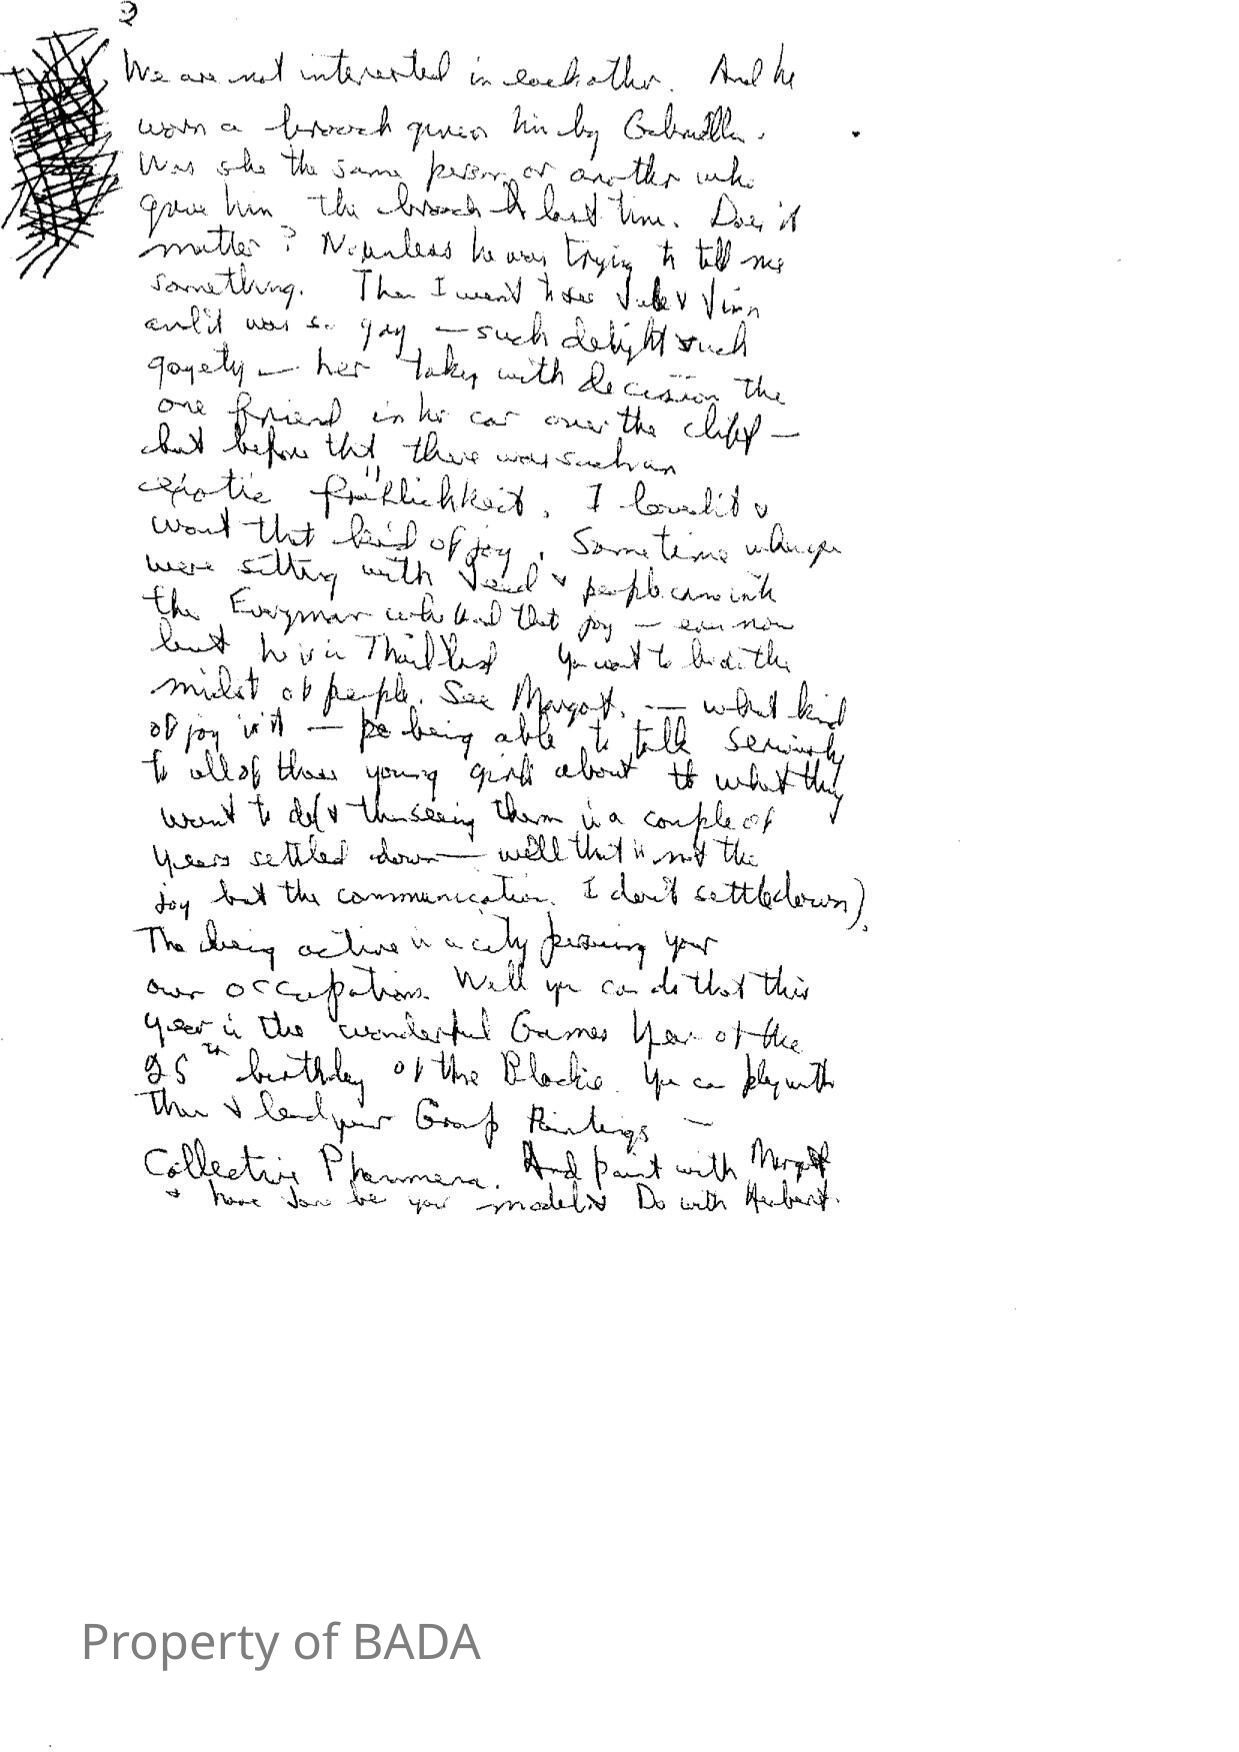 2
We are not interested in each other. And he
worn a broach given him by Gabriella.
Was she the same person or another who
gave him the broach last time. Does it
matter? No, unless he was trying to tell me
something. Then I went to see Jules v Jim
and it was so gay — such delight such
gayety — her taking with decision the
one friend in her car over the cliff —
but before tht there was such an
exotic fröhlichkeit. I loved it &
want tht kind of joy. Some time when you
were sitting with & people came into
the Everyman who had tht joy — even now
but he is in Thailand You want to be in the
midst of people. See Margot. — what kind
of joy is it — being able to talk seriously
to all of those young girls about what they
want to do (& then seeing them in a couple of
years settled down — well that is not the
joy but the communication. I don't settle down).
The being active in a city pursuing your
own occupations. Well you can do that this
year in the wonderful Games Year of the
25th birthday of the Blackie. You can play with
them & lead your Group Paintings —
Collective Phenomena. And paint with Margot
& have be your model & Do with Herbert.
Property of BADA